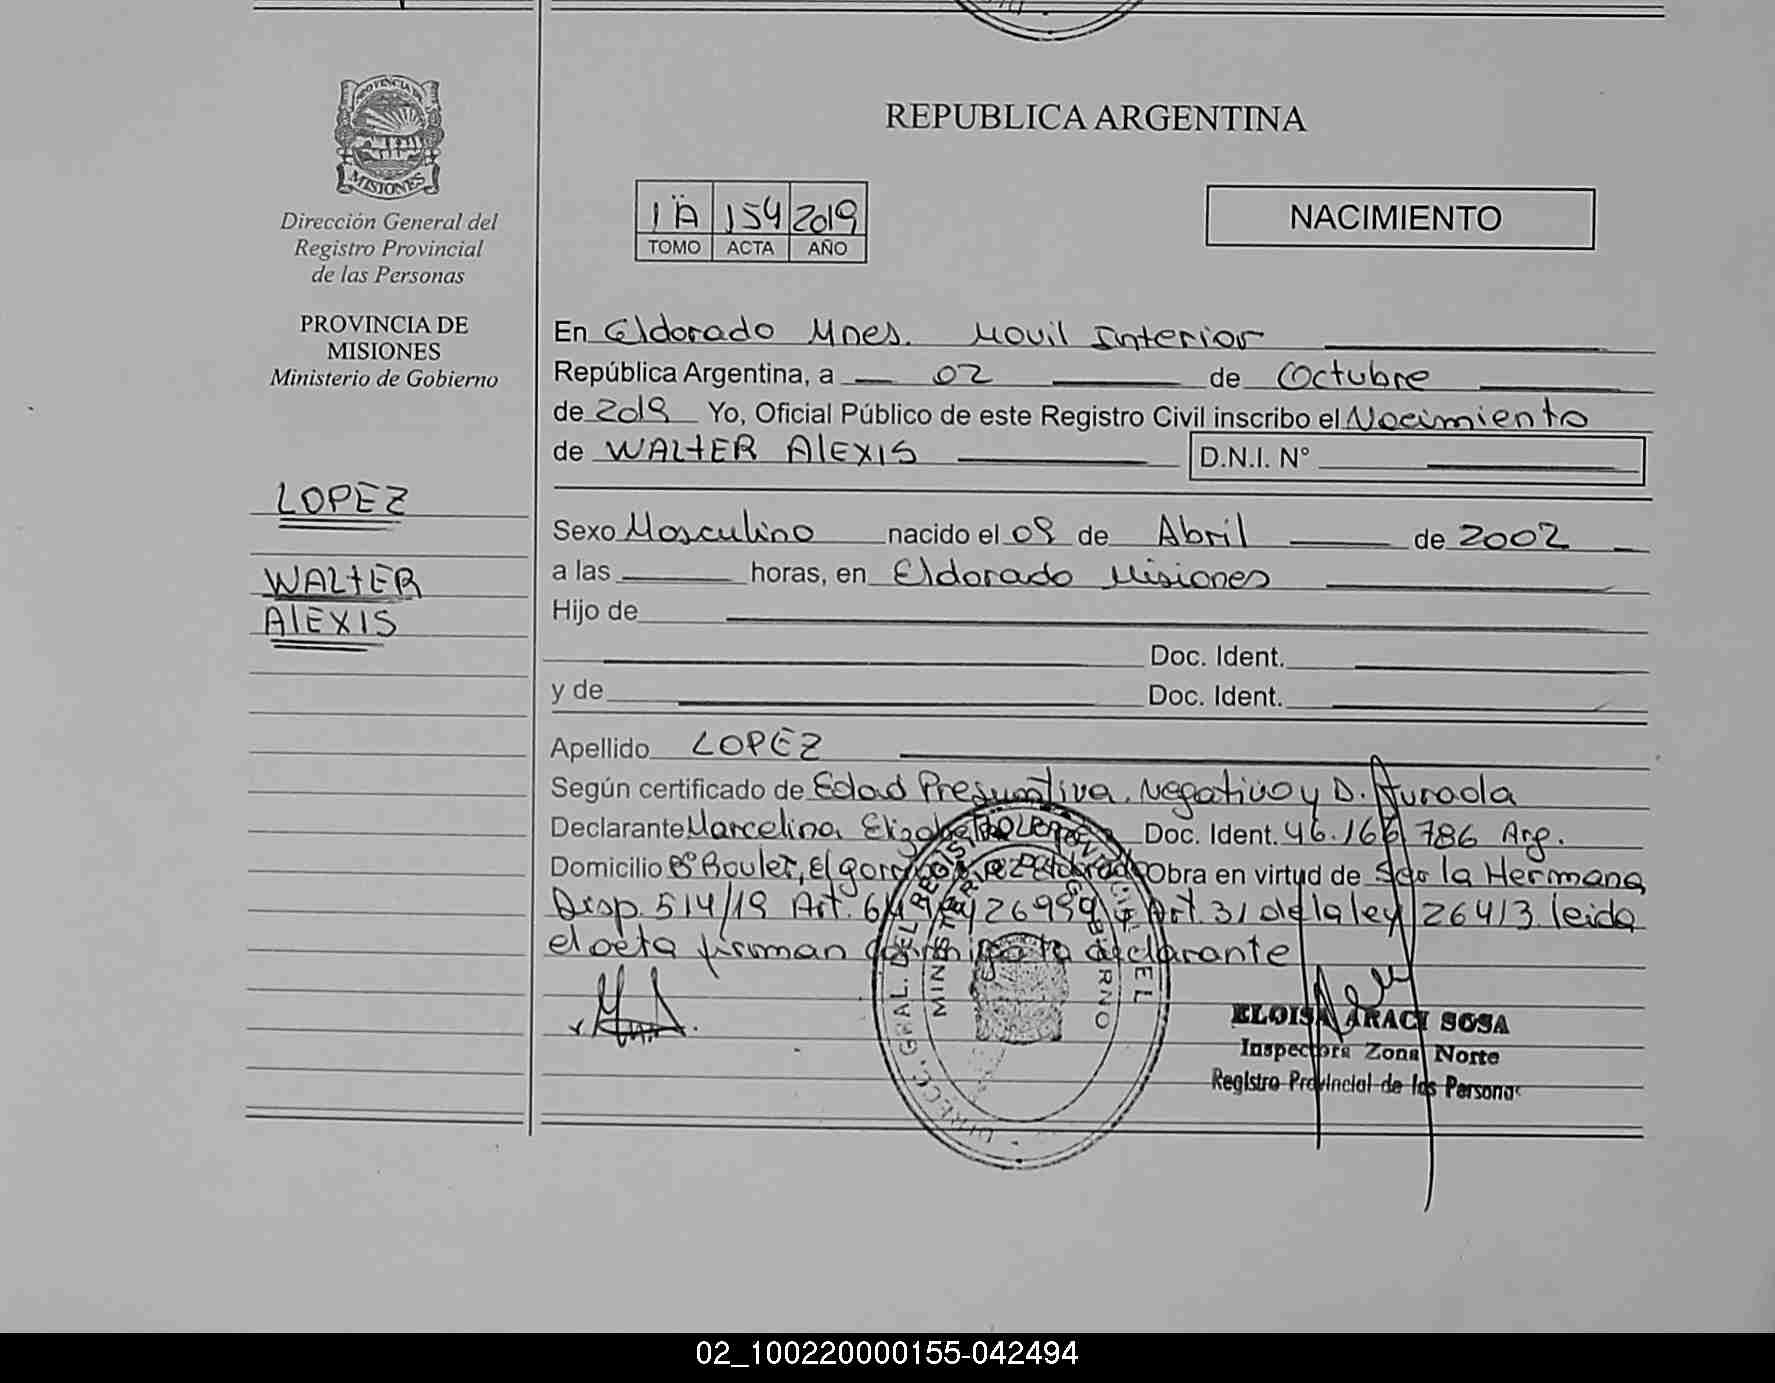 PROVINCIA DE
MISIONES
Dirección General del
Registro Provincial
de las Personas
PROVINCIA DE
MISIONES
Ministerio de Gobierno
LOPEZ
WALTER
ALEXIS
REPUBLICA ARGENTINA
1 Ä 154 2019
TOMO ACTA AÑO
NACIMIENTO
En Eldorado Mnes. Movil Interior
República Argentina, a 02 de Octubre
de 2019 Yo, Oficial Público de este Registro Civil inscribo el Nacimiento
de WALTER ALEXIS D.N.I. N°
Sexo Masculino nacido el 09 de Abril de 2002
a las horas, en Eldorado Misiones
Hijo de
Doc. Ident.
y de Doc. Ident.
Apellido LOPEZ
Según certificado de Edad Presuntiva. Negativo y D. Jurada
Declarante Marcelina Doc. Ident. 46.166 786 Arg.
Domicilio B° Roulet, Obra en virtud de la Hermana
Disp. 514/19 Art. 26994 Art. 31 de la ley 26413. leida
el acta firman la declarante
DIRECC. GRAL. DEL REGISTRO PROVINCIAL DE L
MINISTERIO DE GOBIERNO
ELOISA ARACI SOSA
Inspectora Zona Norte
Registro Provincial de las Persona
02_100220000155-042494